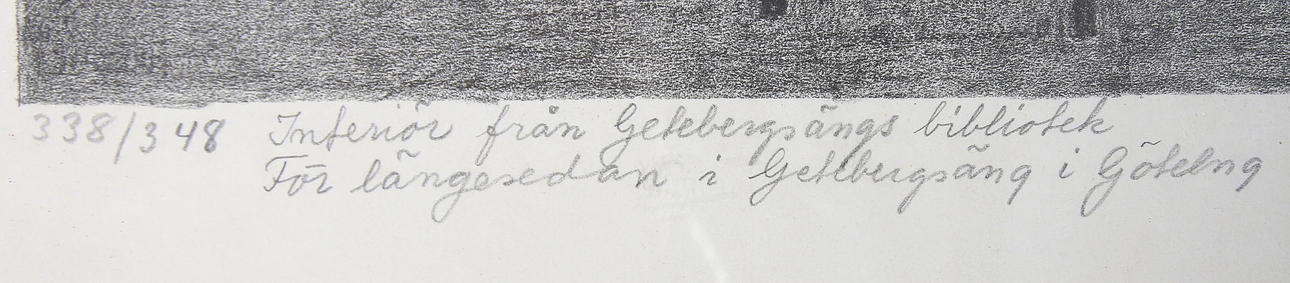 338/348 Interiör från Getebergsängs bibliotek
För längesedan i Getebergsäng i Götebng